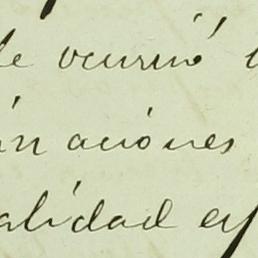 le ocurrió
in aciones
alidad es